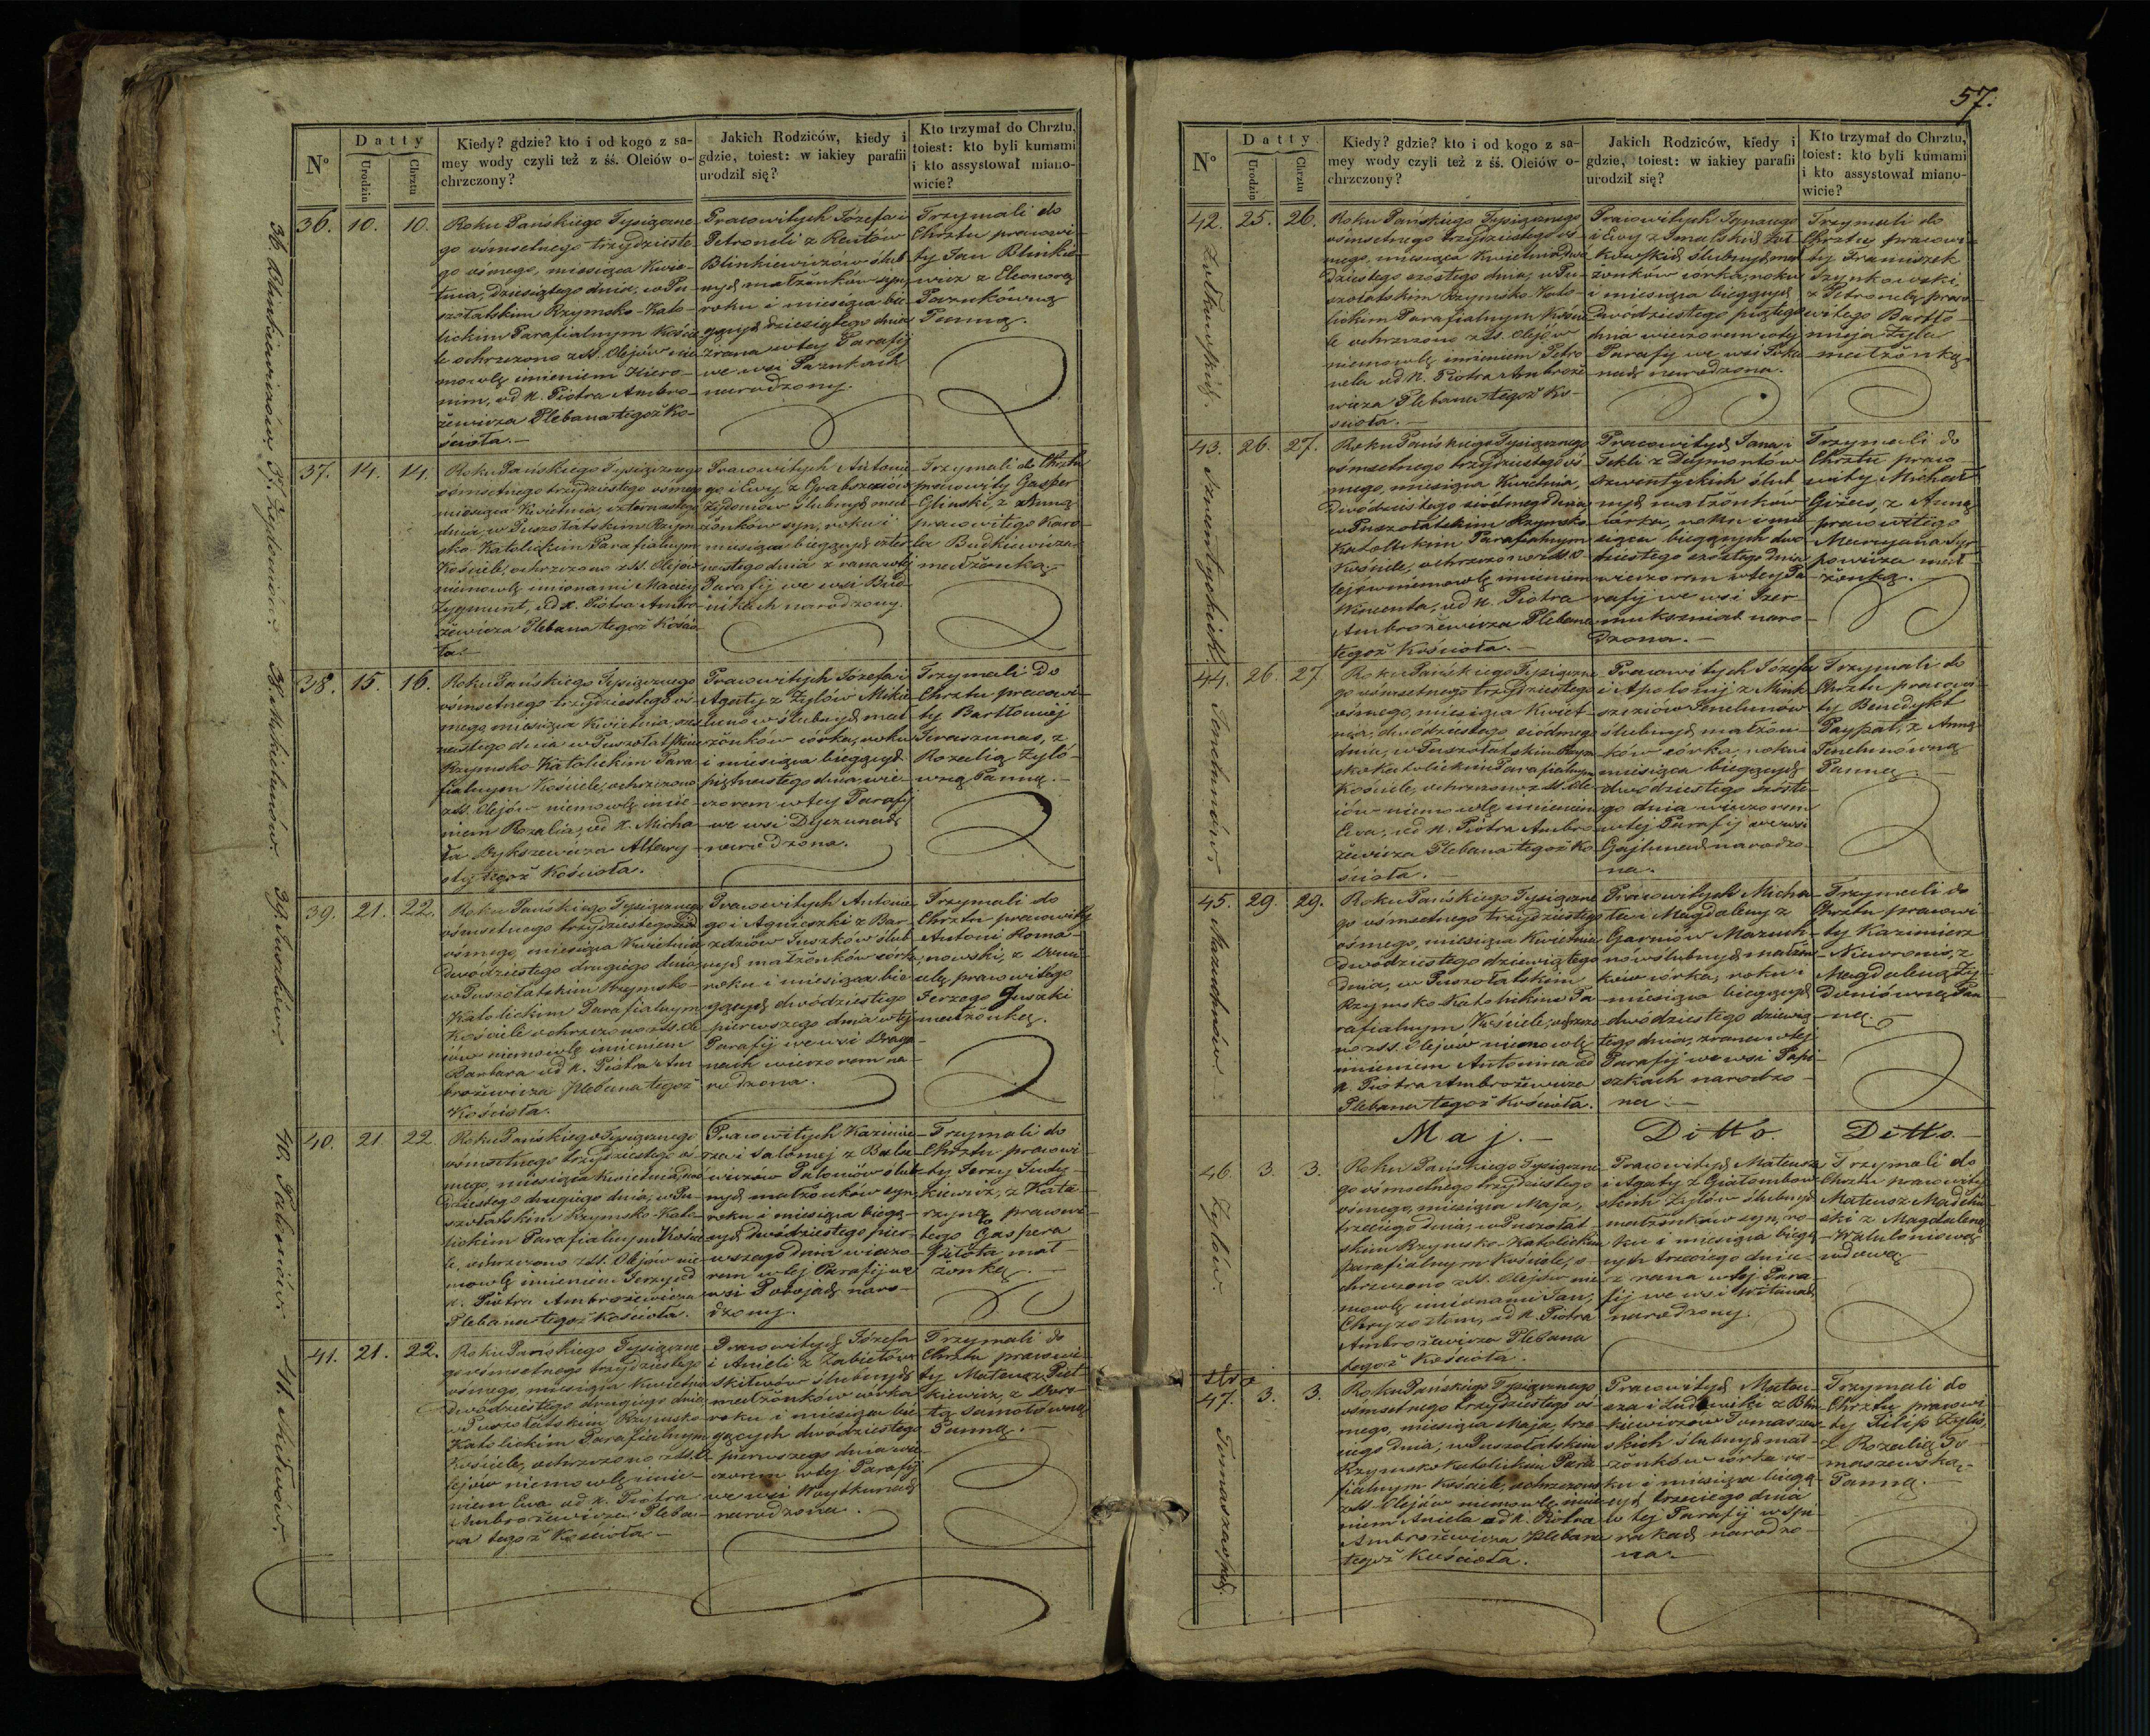 57.
No
Datty
Urodzin
Chrztu
Kiedy? gdzie? kto i od kogo z sa-
mey wody czyli też z śś. Oleiów o-
chrzczony?
Jakich Rodziców, kiedy i
gdzie, toiest: w iakiey parafii
urodził się?
Kto trzymał do Chrztu,
toiest: kto byli kumami
i kto assystował miano-
wicie?
36. Blinkiewiczów
36. 10. 10.
Roku Pańskiego Tysiączne-
go ośmsetnego trzydzieste-
go ośmego, miesiąca Kwie-
tnia, dziesiątego dnia, w Pu-
szołatskim Rzymsko-Kato-
lickim Parafialnym Koście-
le ochrzczono z SS. Olejów nie-
mowlę imieniem Hiero-
nim, od X. Piotra Ambro-
żewicza Plebana tegoż Ko-
ścioła.
Pracowitych Józefa i
Petroneli z
Blinkiewiczow ślub-
nych małżonków syn,
roku i miesiąca bie-
gących dziesiątego dnia
zrana w tey Parafij
we wsi Paznkach
narodzony.
Trzymali do
Chrztu pracowi-
ty Jan Blinkie-
wicz z Eleonorą
Panną.
37. Żydoniów
37. 14. 14.
Roku Pańskiego Tysiącznego
ośmsetnego trzydziestego ośmego
miesiąca Kwietnia, czternastego
dnia, w Puszołatskim Rzym-
sko-Katolickim Parafialnym
Kościele, ochrzczono z SS. Olejow
niemowlę imionami Maciey
Zygmunt, od X. Piotra Ambro-
żewicza Plebana tegoż Kościo-
ła.
Pracowitych Antonie-
go i Ewy z
Żydoniow ślubnych mał-
żonków syn, roku i
miesiąca biegących czter-
nastego dnia z rana w tej
Parafij we wsi Bud-
nikach narodzony.
Trzymali do Chrztu
pracowity Gasper
Gliński, z Anną
pracowitego Karo-
la Budkiewicza
małżonką.
38. Mikielunów
38. 15. 16.
Roku Pańskiego Tysiącznego
ośmsetnego trzydziestego oś-
mego, miesiąca Kwietnia, szes-
nastego dnia w Puszołatskim
Rzymsko-Katolickim Para-
fialnym Kościele, ochrzczono
z SS. Olejów niemowlę imie-
niem Rozalia, od X. Micha-
ła Altary-
sty tegoż Kościoła.
Pracowitych Józefa i
Agaty z Żylów Mikie-
lunow ślubnych mał-
żonków córka, roku
i miesiąca biegących
piętnastego dnia wie-
czorem w tey Parafij
we wsi
narodzona.
Trzymali do
Chrztu pracowi-
ty Bartłomiej
z
Rozalią Żyló-
wną Panną.
39. Juszków
39. 21. 22.
Roku Pańskiego Tysiącznego
ośmsetnego trzydziestego
ośmego, miesiąca Kwietnia
dwódziestego drugiego dnia,
w Puszołatskim Rzymsko-
Katolickim Parafialnym
Kościele ochrzczono z SS. Ole-
jów niemowlę imieniem
Barbara od X. Piotra Am-
brożewicza Plebana tegoż
Kościoła.
Pracowitych Antonie-
go i Agnieszki z Bar-
Juszków ślub-
nych małżonków córka,
roku i miesiąca bie-
gących dwódziestego
pierwszego dnia w tej
Parafij we wsi
wieczorem na-
rodzona.
Trzymali do
Chrztu pracowity
Antoni Roma-
nowski, z
pracowitego
Jerzego Juszki
małżonką.
40. Paloniów.
40. 21 22
Roku Pańskiego Tysiącznego
ośmsetnego trzydziestego oś-
mego, miesiąca Kwietnia, dwó-
dziestego drugiego dnia, w Pu-
szołatskim Rzymsko-Kato-
lickim Parafialnym Koście-
le, ochrzczono z SS. Olejów nie-
mowlę imieniem Jerzy od
X. Piotra Ambrożewicza
Plebana tegoż Kościoła.
Pracowitych Kazimie-
rza i Salomej z
Paloniów ślub-
nych małżonków syn,
roku i miesiąca biegą-
cych dwódziestego pier-
wszego dnia wieczo-
rem w tej Parafij we
wsi naro-
dzony.
Trzymali do
Chrztu pracowi-
ty Jerzy Judy-
ckiewicz, z Kata-
rzyną pracowi-
tego Gaspera
mał-
żonką.
41.
41. 21. 22.
Roku Pańskiego Tysiączne-
go ośmsetnego trzydziestego
ośmego, miesiąca Kwietnia
dwódziestego drugiego dnia
w Puszołatskim Rzymsko
Katolickim Parafialnym
Kościele, ochrzczono z SS. O-
lejów niemowlę imie-
niem Ewa od X. Piotra
Ambrożewicza Pleba-
na tegoż Kościoła.
Pracowitych Józefa
i Anieli z
ślubnych
małżonków córka
roku i miesiąca bie-
gących dwódziestego
pierwszego dnia wie-
czorem w tej Parafij
we wsi
narodzona.
Trzymali do
Chrztu pracowi-
ty Mateusz Piet-
kiewicz, z Doro-
tą
Panną.
No
Datty
Urodzin
Chrztu
Kiedy? gdzie? kto i od kogo z sa-
mey wody czyli też z śś. Oleiów o-
chrzczony?
Jakich Rodziców, kiedy i
gdzie, toiest: w iakiey parafii
urodził się?
Kto trzymał do Chrztu,
toiest: kto byli kumami
i kto assystował miano-
wicie?
Żołkowskich.
42. 25. 26.
Roku Pańskiego Tysiącznego
ośmsetnego trzydziestego oś-
mego, miesiąca Kwietnia dwó-
dziestego szóstego dnia, w Pu-
szołatskim Rzymsko-Kato-
lickim Parafialnym Koście-
le ochrzczono z SS. Olejów
niemowlę imieniem Petro-
nela od X. Piotra Ambroże-
wicza Plebana tegoż Ko-
ścioła.
Pracowitych Ignacego
i Ewy z Żoł-
kowskich ślubnych mał-
żonków córka, roku
i miesiąca biegących
dwódziestego piątego
dnia wieczorem w tej
Parafij we wsi
narodzona.
Trzymali do
Chrztu pracowi-
ty Franciszek
Szynkowski,
z Petronelą praco-
witego Bartło-
mieja Żyla
małżonką.
Szwentyckich
43. 26. 27.
Roku Pańskiego Tysiącznego
ośmsetnego trzydziestego oś-
mego, miesiąca Kwietnia,
dwódziestego siódmego dnia,
w Puszołatskim Rzymsko-
Katolickim Parafialnym
Kościele, ochrzczono z SS. O-
lejów niemowlę imieniem
Wincenta, od X. Piotra
Ambrożewicza Plebana
tegoż Kościoła.
Pracowitych Jana i
Tekli z Dajmontów
Szwentyckich ślub-
nych małżonków
córka, roku i mie-
siąca biegących dwó-
dziestego szóstego dnia
wieczorem w tej Pa-
rafij we wsi Szer-
naro-
dzona.
Trzymali do
Chrztu praco-
wity Michał
z Anną
pracowitego
Maryana
mał-
żonką.
44. 26. 27
Roku Pańskiego Tysiączne-
go ośmsetnego trzydziestego
ośmego, miesiąca Kwiet-
nia, dwódziestego siódmego
dnia, w Puszołatskim Rzym-
sko Katolickim Parafialnym
Kościele, ochrzczono z SS. Ole-
jów niemowlę imieniem
Ewa, od X. Piotra Ambro-
żewicza Plebana tegoż Ko-
ścioła.
Pracowitych Józefa
i Apolonij z
ślubnych małżon-
ków córka, roku i
miesiąca biegących
dwódziestego szóste-
go dnia wieczorem
w tej Parafij we wsi
narodzo-
na.
Trzymali do
Chrztu pracowi-
ty Benedykt
z Anną
Panną.
45. 29. 29.
Roku Pańskiego Tysiączne-
go ośmsetnego trzydziestego
ośmego, miesiąca Kwietnia
dwódziestego dziewiątego
dnia, w Puszołatskim
Rzymsko-Katolickim Pa-
rafialnym Kościele, ochrzczo-
no z SS. Olejów niemowlę
imieniem Antonina od
X. Piotra Ambrożewicza
Plebana tegoż Kościoła.
Pracowitych Micha-
ła i Magdaleny z
ślubnych małżon-
ków córka, roku i
miesiąca biegących
dwódziestego dziewią-
tego dnia, z rana w tej
Parafij we wsi Papi-
szkach narodzo-
na.
Trzymali do
Chrztu pracowi-
ty Kazimierz
z
Magdaleną Ży-
doniówną Pan-
ną.
Maj.
Ditto.
Ditto.
Żylów.
46. 3. 3.
Roku Pańskiego Tysiączne-
go ośmsetnego trzydziestego
ośmego, miesiąca Maja,
trzeciego dnia, w Puszołat-
skim Rzymsko-Katolickim
parafialnym Kościele, o-
chrzczono z SS. Olejów nie-
mowlę imionami Jan,
Chryzostom, od X. Piotra
Ambrożewicza Plebana
tegoż Kościoła.
Pracowitych Mateusza
i Agaty z
Żylów ślubnych
małżonków syn, ro-
ku i miesiąca biegą-
cych trzeciego dnia
z rana w tej Para-
fij we wsi
narodzony.
Trzymali do
Chrztu pracowity
Mateusz
z Magdaleną
wdową.
Tomaszewskich.
47. 3. 3.
Roku Pańskiego Tysiącznego
ośmsetnego trzydziestego oś-
mego, miesiąca Maja, trze-
ciego dnia, w Puszołatskim
Rzymsko Katolickim Para-
fialnym Kościele, ochrzczono
z SS. Olejów niemowlę imie-
niem Aniela od X. Piotra
Ambrożewicza Plebana
tegoż Kościoła.
Pracowitych Mateu-
sza i Ludwiki z Blin-
kiewiczow Tomaszew-
skich ślubnych mał-
żonków córka ro-
ku i miesiąca biegą-
cych trzeciego dnia
w tej Parafij
narodzo-
na.
Trzymali do
Chrztu pracowi-
ty Filip Żylis,
z Rozalią To-
maszewską,
Panną.